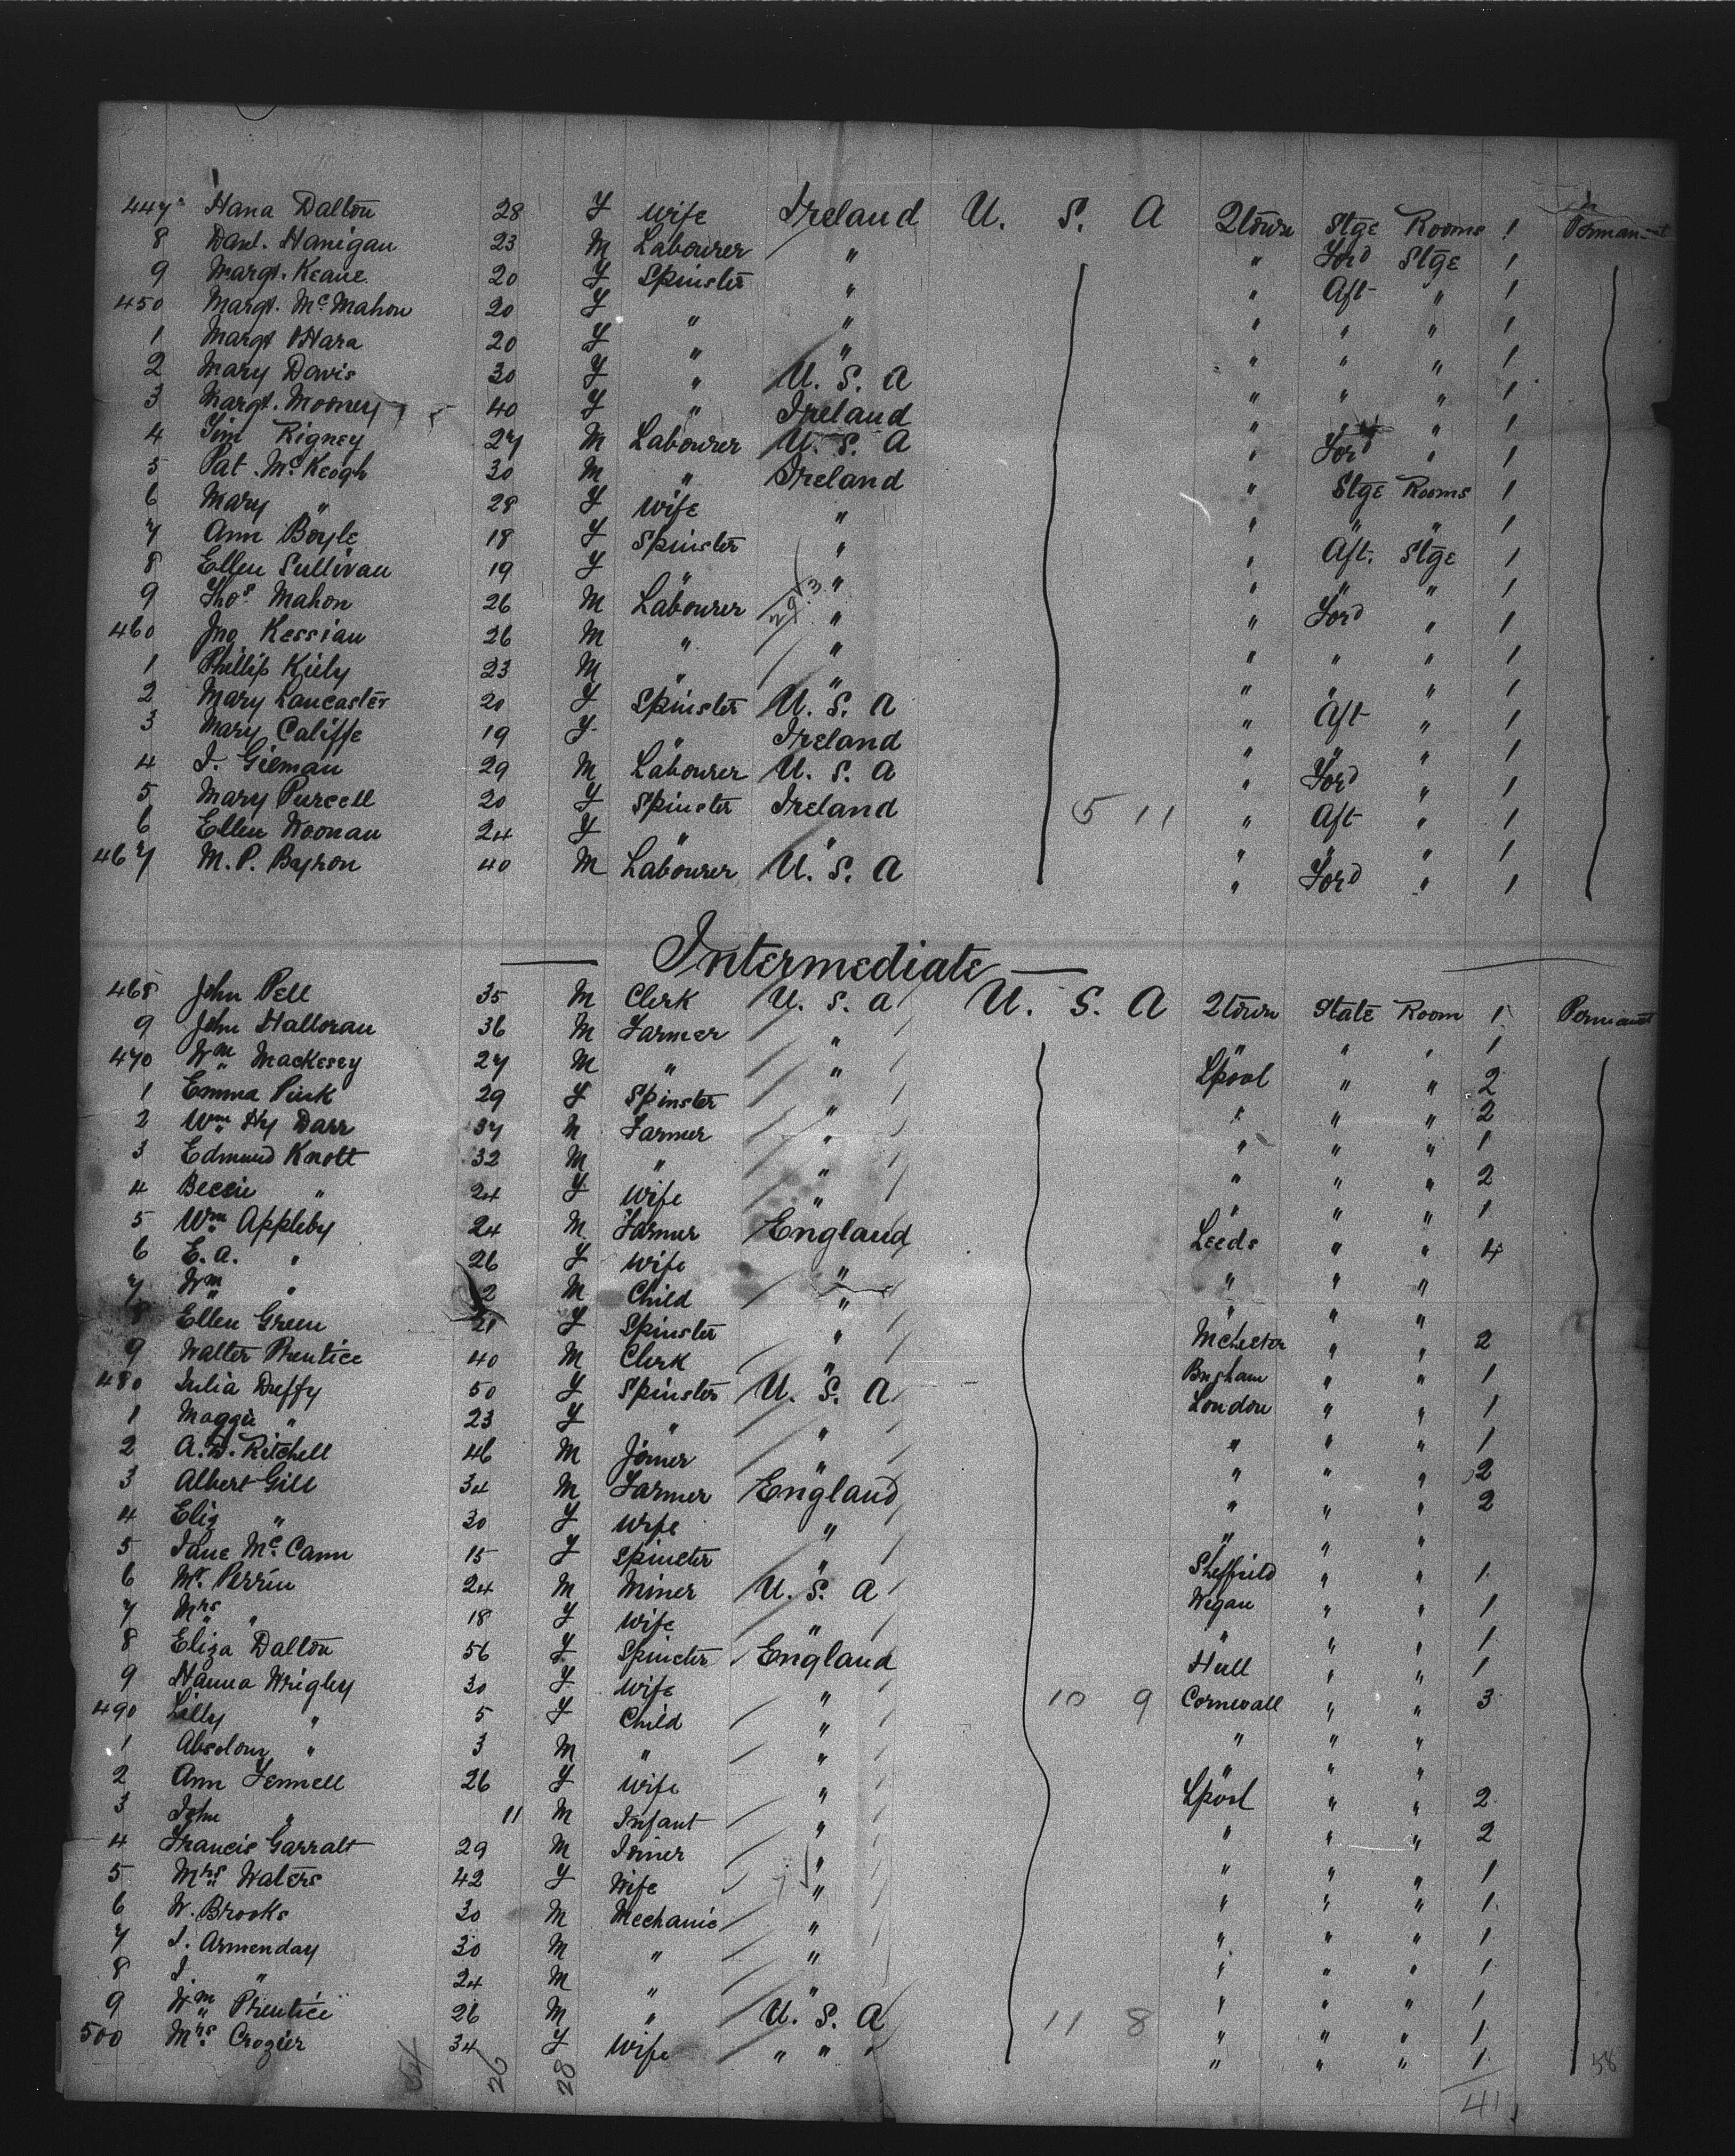 447 Hana Dalton 28 F Wife Ireland U. S. A Qtown Stge Rooms 1 Perman-t
8 Danl. Hanigan 23 M Labourer " " Ford Stge 1
9 Margt. Keane 20 F Spinster " " Aft " 1
450 Margt. McMahon 20 F " " " " " 1
1 Margt OHara 20 F " " " " " 1
2 Mary Davis 30 F " U. S. A " " " 1
3 Margt. Mooney 40 F " Ireland " " " 1
4 Jim Rigney 27 M Labourer U. S. A " Ford " 1
5 Pat. McKeogh 30 M " Ireland " Stge Rooms 1
6 Mary " 28 F Wife " " " " 1
7 Ann Boyle 18 F Spinster " " Aft. Stge 1
8 Ellen Sullivan 19 F " " " " " 1
9 Thos. Mahon 26 M Labourer " " Ford " 1
460 Jno Kessian 26 M " " " " " 1
1 Phillip Kiely 23 M " " " " " 1
2 Mary Lancaster 20 F Spinster U. S. A " Aft " 1
3 Mary Califfe 19 F " Ireland " " " 1
4 J. Gieman 29 M Labourer U. S. A " Ford " 1
5 Mary Purcell 20 F Spinster Ireland 5 11 " Aft " 1
6 Ellen Noonan 24 F " " " " " 1
467 M. P. Byron 40 M Labourer U. S. A " Ford " 1
Intermediate
468 John Pell 35 M Clerk U. S. A U. S. A Qtown State Room 1 Permant
9 John Halloran 36 M Farmer " " " " 1
470 Wm Mackesey 27 M " " Lpool " " 2
1 Emma Pink 29 F Spinster " " " " 2
2 Wm Hy Darr 37 M Farmer " " " " 1
3 Edmund Knott 32 M " " " " " 2
4 Bessie " 24 F Wife " " " " 1
5 Wm Appleby 24 M Farmer England Leeds " " 4
6 E. A. " 26 F Wife " " " "
7 Wm " 2 M Child " " " "
8 Ellen Green 21 F Spinster " Mchester " " 2
9 Walter Prentice 40 M Clerk " Bngham " " 1
480 Julia Duffy 50 F Spinster U. S. A London " " 1
1 Maggie " 23 F " " " " " 1
2 A. W. Kitchell 46 M Joiner " " " " 2
3 Albert Gill 34 M Farmer England " " " 2
4 Eliz " 30 F Wife " " " "
5 Jane McCann 15 F Spinster " Sheffield " " 1
6 Mr. Perrin 24 M Miner U. S. A Wegan " " 1
7 Mrs " 18 F Wife " " " " 1
8 Eliza Dalton 56 F Spinster England Hull " " 1
9 Hanna Wrigley 30 F Wife " 10 9 Cornwall " " 3
490 Lilly " 5 F Child " " " "
1 Absolom " 3 M " " " " "
2 Ann Fennell 26 F Wife " Lpool " " 2
3 John " 11 M Infant " " " " 2
4 Francis Garralt 29 M Joiner " " " " 1
5 Mrs Waters 42 F Wife " " " " 1
6 W. Brooks 30 M Mechanic " " " " 1
7 J. Armenday 30 M " " " " " 1
8 J. " 24 M " " " " " 1
9 Wm Prentice 26 M " U. S. A 11 8 " " " 1
500 Mrs. Crozier 34 F Wife " " " " " " 1
54 26 28 41 58